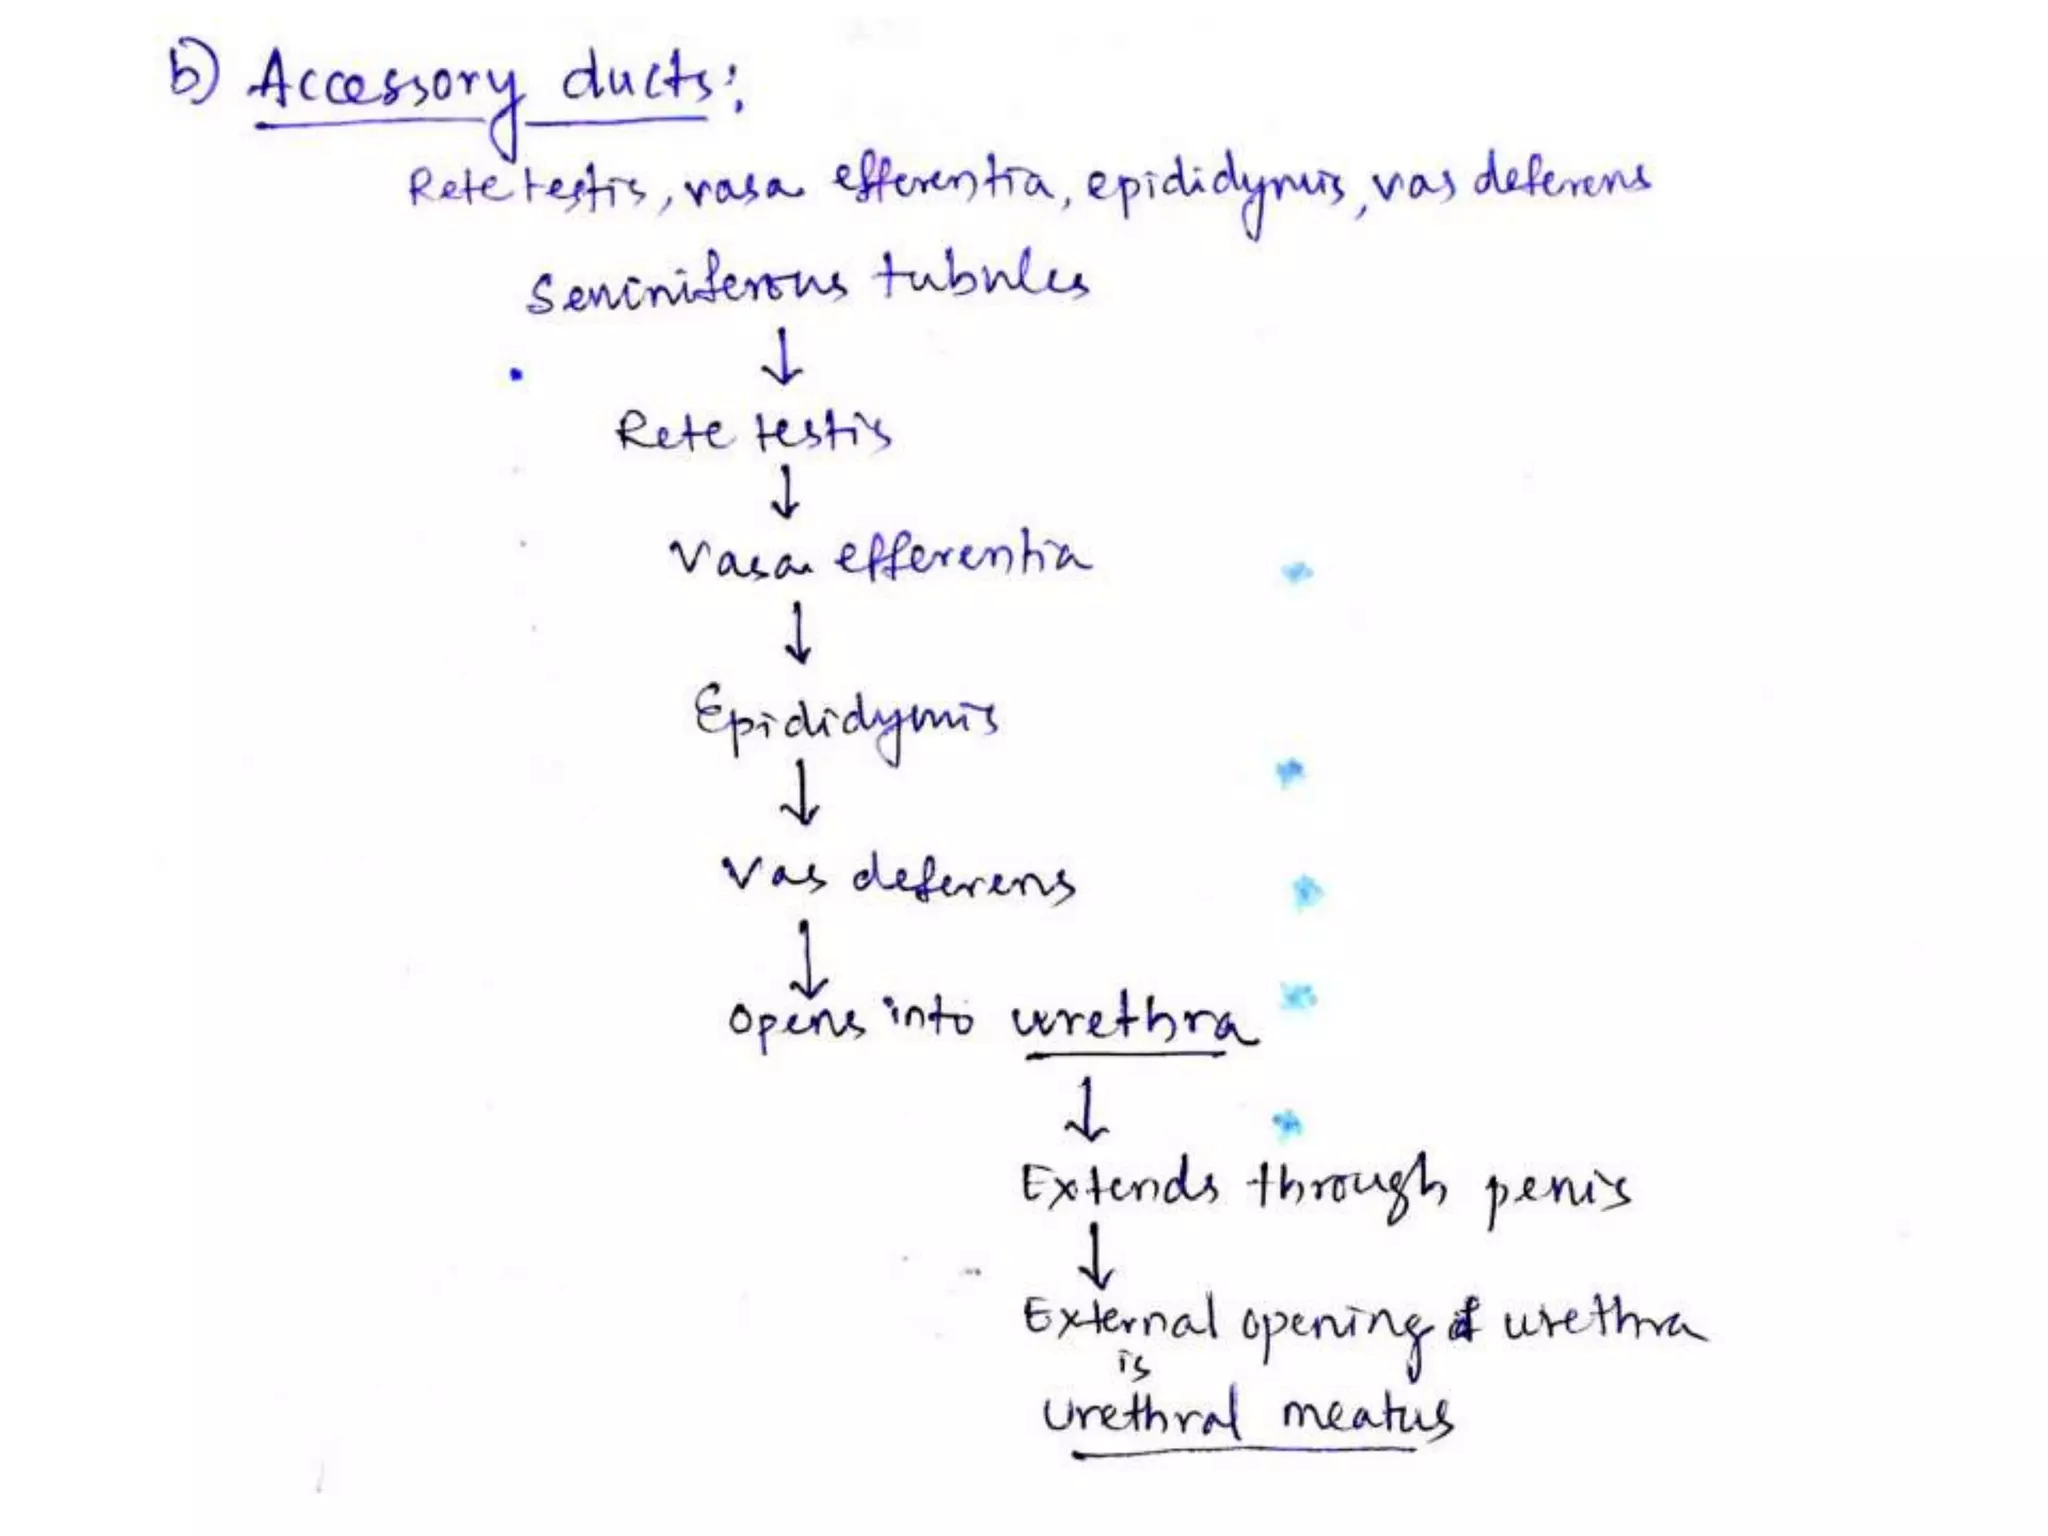 b) Accessory ducts:
Rete testis, vasa efferentia, epididymis, vas deferens
Seminiferous tubules
↓
Rete testis
↓
Vasa efferentia
↓
Epididymis
↓
Vas deferens
↓
Opens into urethra
↓
Extends through penis
↓
External opening of urethra
is
Urethral meatus